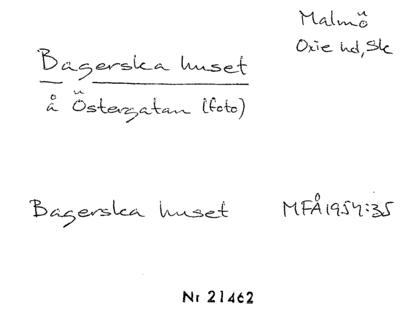 Malmö
Oxie hd, Sk
Bagerska huset
å Östergatan (foto)
Bagerska huset MFÅ 1954:35
Nr 21462